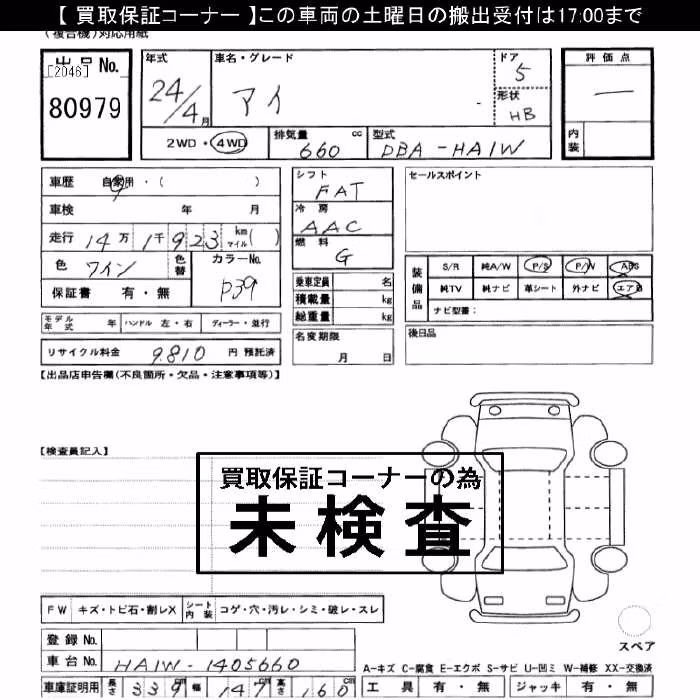 【 買取保証コーナー 】この車両の土曜日の搬出受付は17:00まで
(複合機)対応用紙
出品 No.
[2046]
80979
年式
24/4月
車名・グレード
アイ
ドア
5
形状
HB
評価点
—
内装
2WD・4WD
排気量 cc
660
型式
DBA-HA1W
車歴 自家用・( )
車検 年 月
走行 14万1千923 km マイル( )
色 ワイン 色替
カラーNo.
P39
保証書 有・無
シフト
FAT
冷房
AAC
燃料
G
乗車定員 名
積載量 kg
総重量 kg
セールスポイント
装備品
S/R 純A/W P/S P/W ABS
純TV 純ナビ 革シート 外ナビ エアB
ナビ型番:
モデル年式 年 ハンドル 左・右 ディーラー・並行
リサイクル料金 9.810 円 預託済
名変期限
月 日
後日品
【出品店申告欄(不良箇所・欠品・注意事項等)】
【検査員記入】
買取保証コーナーの為
未検査
FW キズ・トビ石・割レX シート内装 コゲ・穴・汚レ・シミ・破レ・スレ
登録 No.
車台 No. HA1W-1405660
車庫証明用 長さ 339 cm 幅 147 cm 高さ 160 cm
スペア
A-キズ C-腐食 E-エクボ S-サビ U-凹ミ W-補修 XX-交換済
工具 有・無 ジャッキ 有・無